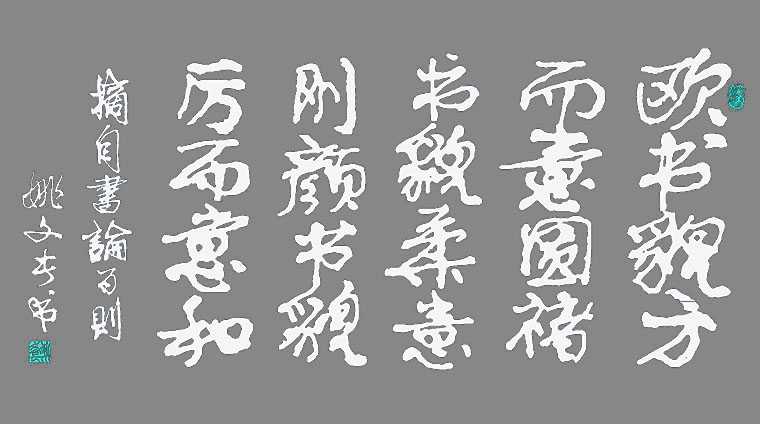 欧书貌方
而意圆褚
书貌柔意
刚颜书貌
厉而意和
摘自書論百則
姚文奎书